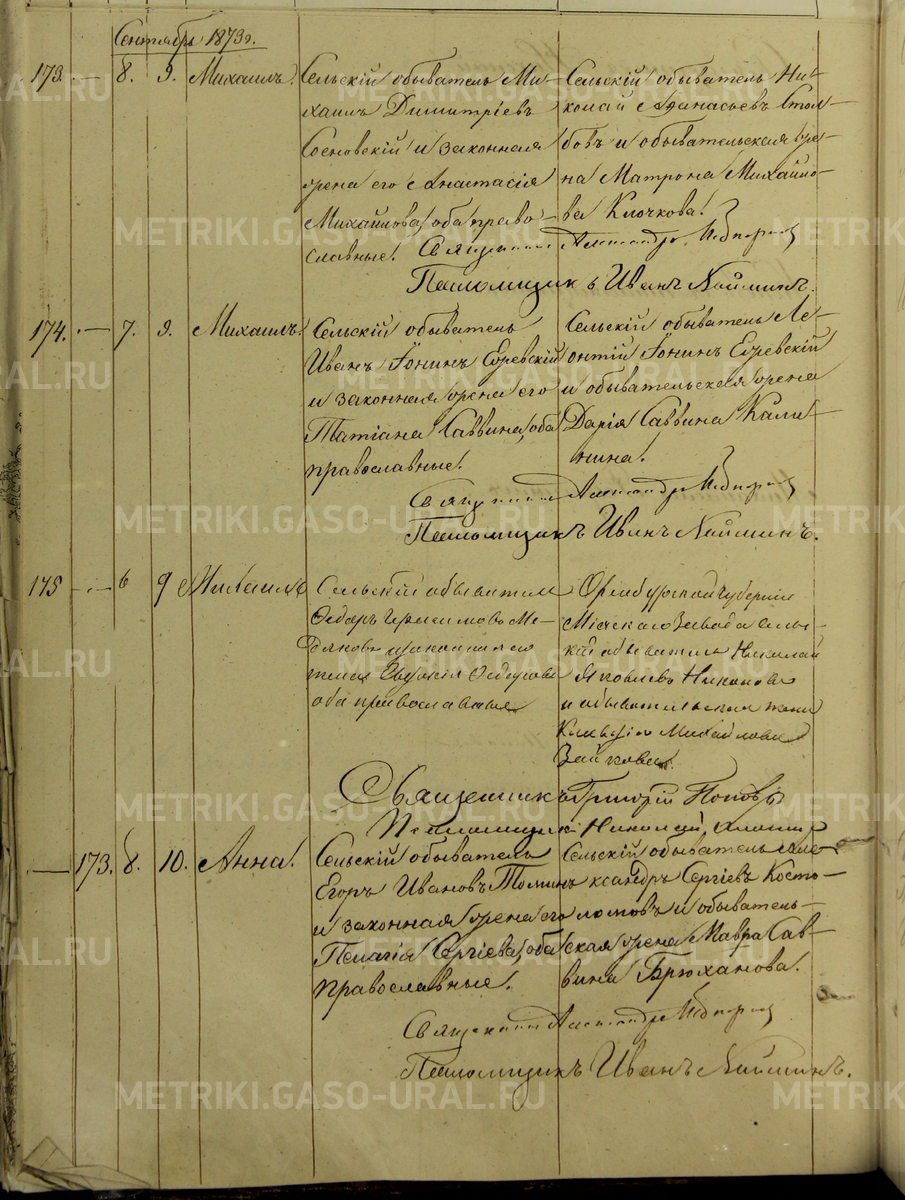 Сентябрь 1873г.
173. 8. 9. Михаилъ.
Сельскій обыватель Ми-
хаилъ Димитріевъ
Сосновскій и законная
жена его Анастасія
Михайлова, оба право-
славные.
Сельскій обыватель Ни-
колай Аѳанасьевъ Стол-
бовъ и обывательская же-
на Матрона Михайло-
ва Клочкова.
Священникъ Александръ
Псаломщикъ Иванъ
174. 7. 9. Михаилъ.
Сельскій обыватель
Иванъ Іонинъ
и законная жена его
Татіана Саввина, оба
православные.
Сельскій обыватель Ле-
онтій Іонинъ
и обывательская жена
Дарія Саввина Кали-
нина.
Священникъ Александръ
Псаломщикъ Иванъ
175 6 9 Михаилъ
Сельскій обыватель
Ѳедоръ Герасимовъ Ме-
дяковъ и законная его
жена Ѳедорова
оба православныя
Оренбургской губерніи
Міяскаго Завода сельс-
кій обыватель Николай
Яковлевъ
и обывательская жена
Михайлова
Зайкова.
Священникъ Григорій Поповъ
Псаломщикъ Николай
173. 8. 10. Анна.
Сельскій обыватель
Егоръ Ивановъ Томинъ
и законная жена его
Пелагія Сергіева, оба
православные.
Сельскій обыватель Але-
ксандръ Сергіевъ Косто-
ломовъ и обыватель-
ская жена Мавра Сав-
вина Брюханова.
Священникъ Александръ
Псаломщикъ Иванъ
METRIKI.GASO-URAL.RU